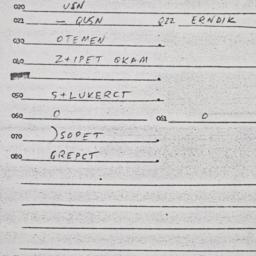 020 USN
021 — QUSN 022 ERNDIK
030 OTEMEN
040 Z+IPET GKAM
050 S+LUKERCT
060 O 061 O
070 )SOPET
080 GREPCT